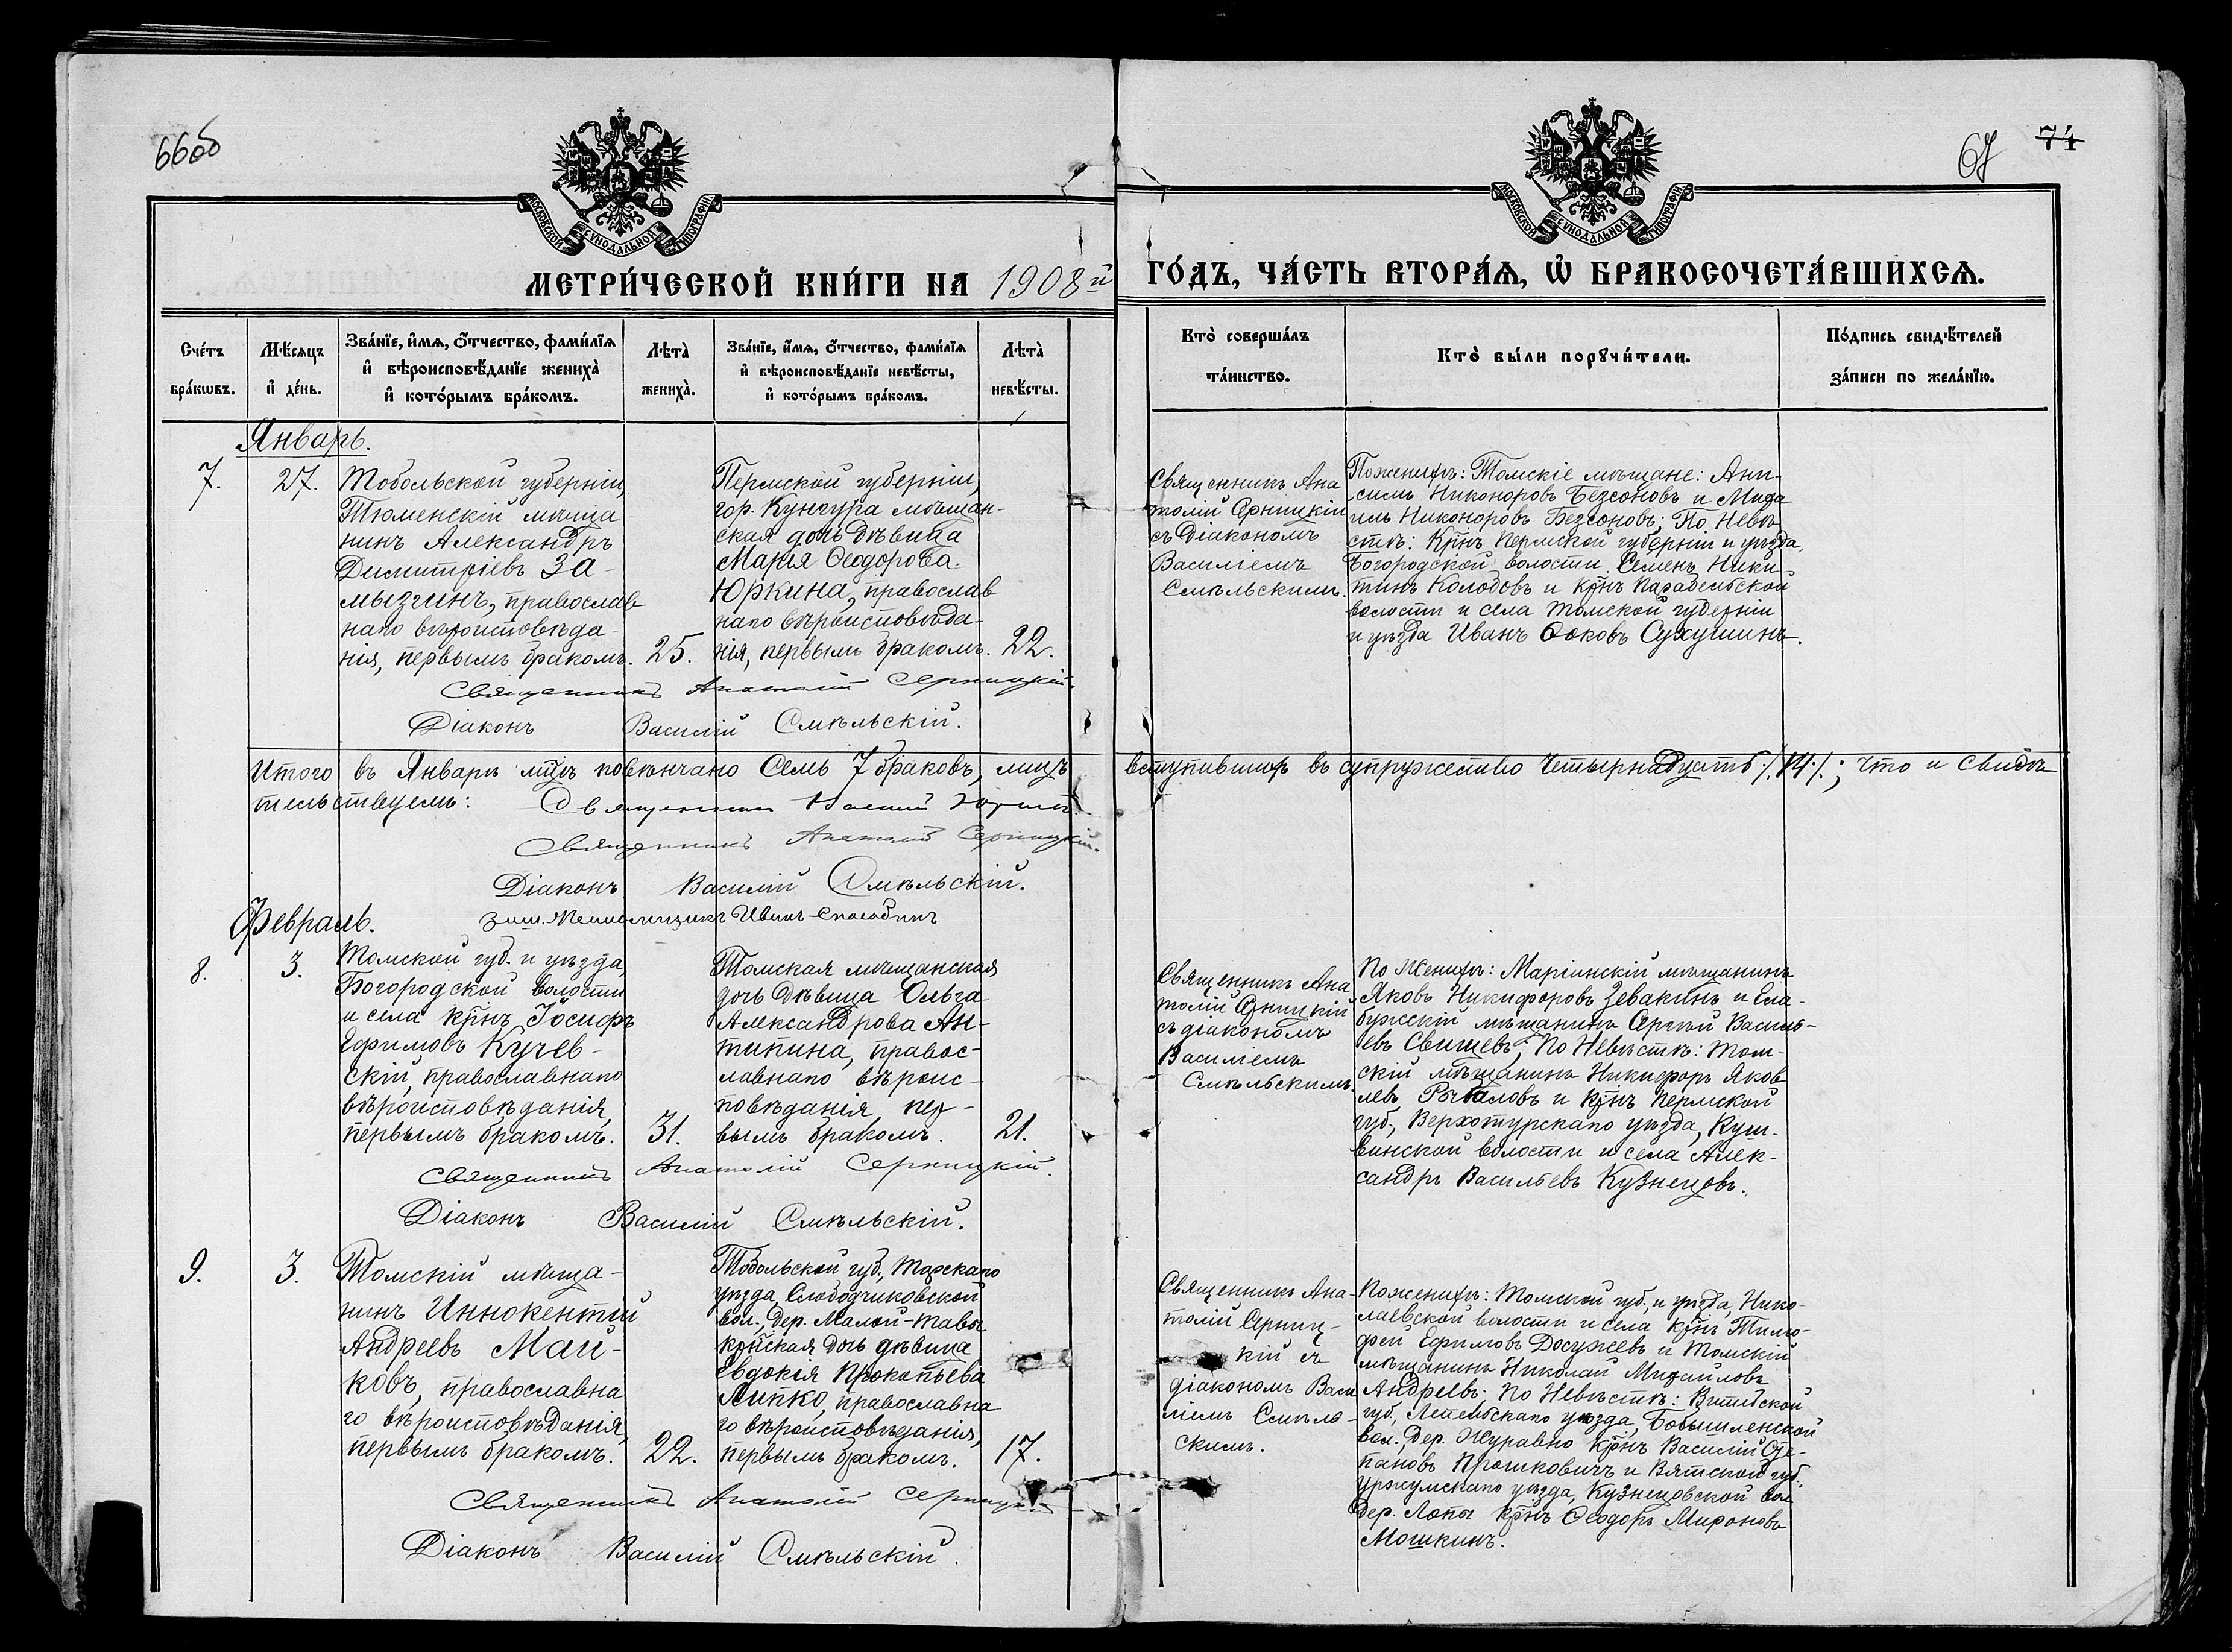 66об
67 74
МОСКОВСКОЙ СѴНОДАЛЬНОЙ ТИПОГРАФІИ
МОСКОВСКОЙ СѴНОДАЛЬНОЙ ТИПОГРАФІИ
МЕТРИ́ЧЕСКОЙ КНИ́ГИ НА 1908й ГО́ДЪ, ЧА́СТЬ ВТОРА́Ѧ, Ѽ БРАКОСОЧЕТА́ВШИХСѦ.
Сче́тъ
бра́кѡвъ.
Мѣ́сѧцъ
и҆ де́нь.
Зва́нїе, и҆́мѧ, ѻ҆́тчество, фами́лїѧ
и҆ вѣроисповѣ́данїе жениха̀
и҆ кото́рымъ бра́комъ.
Лѣта̀
жениха̀.
Зва́нїе, и҆́мѧ, ѻ҆́тчество, фами́лїѧ
и҆ вѣроисповѣ́данїе невѣ́сты,
и҆ кото́рымъ бра́комъ.
Лѣта̀
невѣ́сты.
Кто̀ соверша́лъ
та́инство.
Кто̀ бы́ли порꙋчи́тели.
По́дпись свидѣ́телей
за́писи по жела́нїю.
Январь.
7.
27.
Тобольской губерніи,
Тюменскій мѣща-
нинъ Александръ
Димитріевъ За-
мызгинъ, православ-
наго вѣроисповѣда-
нія, первымъ бракомъ.
25.
Пермской губерніи,
гор. Кунгура мѣщан-
ская дочь дѣвица
Марья Ѳеодорова
Юркина, православ
наго вѣроисповѣда-
нія, первымъ бракомъ.
22.
Священникъ Ана
толій Сѣрницкій
съ Діакономъ
Василіемъ
Смѣльскимъ.
По женихѣ: Томскіе мѣщане: Ани-
симъ Никоноровъ Безсоновъ и Миха
илъ Никоноровъ Безсоновъ; По Невѣ
стѣ: Крнъ Пермской губерніи и уѣзда,
Богородской волости Семенъ Ники
тинъ Колобовъ и крнъ Парабельской
волости и села Томской губерніи
и уѣзда Иванъ Фоковъ Сухушинъ.
Священникъ Анатолій Серницкій.
Діаконъ Василій Смѣльскій.
Итого въ Январѣ мцѣ повѣнчано Семь 7 браковъ, лицъ вступившихъ въ супружество Четырнадцать /14/; что и свидѣ
тельствуемъ: Священникъ
Священникъ Анатолій Серницкій.
Діаконъ Василій Смѣльскій.
Псаломщикъ Иванъ
Февраль.
8.
3.
Томской губ. и уѣзда,
Богородской волости
и села крнъ Іосифъ
Ефимовъ Кучев-
скій, православнаго
вѣроисповѣданія,
первымъ бракомъ.
31.
Томская мѣщанская
дочь Дѣвица Ольга
Александрова Ан-
типина, правос-
лавнаго вѣроис-
повѣданія, пер-
вымъ бракомъ.
21.
Священникъ Ана
толій Сѣрницкій
съ діакономъ
Василіемъ
Смѣльскимъ.
По Женихѣ: Маріинскій мѣщанинъ
Яковъ Никифоровъ Зевакинъ и Ела-
бужскій мѣщанинъ Сергѣй Василь-
евъ Свищевъ; По Невѣстѣ: Том-
скій мѣщанинъ Никифоръ Яков
левъ и крнъ Пермской
губ., Верхотурскаго уѣзда, Куш-
винской волости и села Алек-
сандръ Васильевъ Кузнецовъ.
Священникъ Анатолій Серницкій.
Діаконъ Василій Смѣльскій.
9.
3.
Томскій мѣща-
нинъ Иннокентій
Андреевъ Май-
ковъ, православна
го вѣроисповѣданія,
первымъ бракомъ.
22.
Тобольской губ., Тарскаго
уѣзда, Слободчиковской
вол., дер. Малой-Тавы
крнская дочь дѣвица
Евдокія Прокопьева
Липко, православна
го вѣроисповѣданія,
первымъ бракомъ.
17.
Священникъ Ана-
толій Сѣрниц-
кій съ
діакономъ Васи
ліемъ Смѣль-
скимъ.
По женихѣ: Томской губ., и уѣзда, Нико-
лаевской волости и села крнъ Тимо-
фей Ефимовъ Досужевъ и Томскій
мѣщанинъ Николай Михайловъ
Андреевъ. По Невѣстѣ: Витебской
губ., Лепельскаго уѣзда, Бобыниленской
вол., дер. Журавно крнъ Василій Сте-
пановъ Прошковичъ и Вятской губ.
Уржумскаго уѣзда, Кузнецовской вол
дер. Лопы крнъ Ѳеодоръ Мироновъ
Мошкинъ.
Священникъ Анатолій
Діаконъ Василій Смѣльскій.